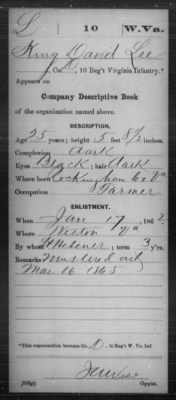 L 10 W.Va.
King David Lee
, Co. D, 10 Reg't Virginia Infantry.*
Appears on
Company Descriptive Book
of the organization named above.
DESCRIPTION.
Age 25 years; height 5 feet 8½ inches.
Complexion Dark
Eyes Black; hair Dark
Where born Rockingham Co Va
Occupation Farmer
ENLISTMENT.
When Jan 17, 1862.
Where Weston Va
By whom; term 3 y'rs.
Remarks Mustered out
Mar 16 1865
*This organization became Co. D, 10 Reg't W. Va. Inf.
Copyist.